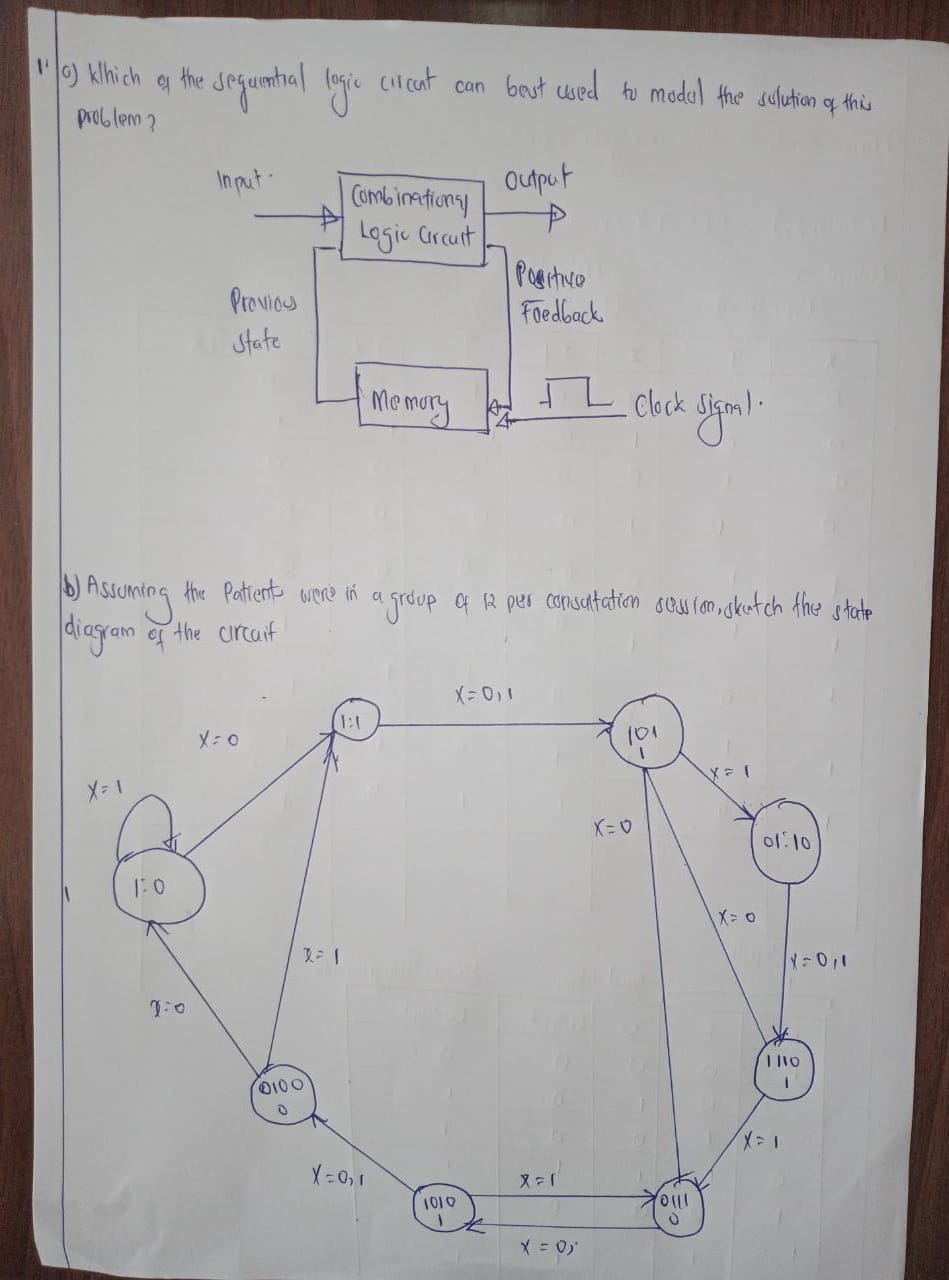 1. a) Which of the sequential logic circut can best used to model the solution of this
problem?
Input
Output
Combinational
Logic Circuit
Positive
Feedback
Previous
state
Memory
Clock signal.
b) Assuming the Patient were in a group of 12 per consultation session, sketch the state
diagram of the circuit
X=0,1
1:1
101
1
X=0
X=1
X=1
X=0
01:10
1:0
X=0
x=1
X=0,1
x=0
1110
1
0100
0
X=1
X=0,1
x=1
1010
1
0111
0
X=0;